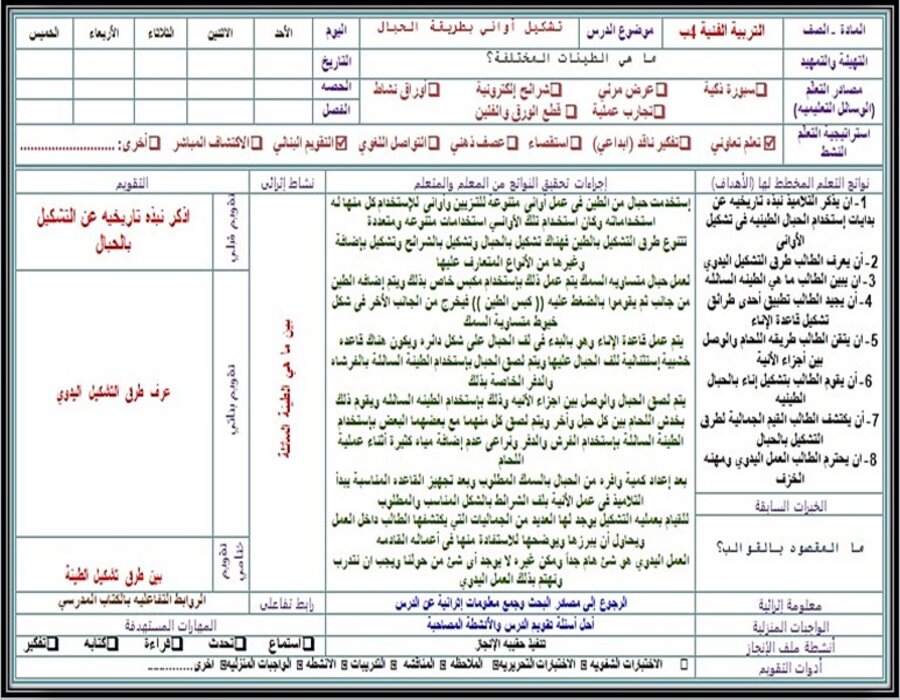 المادة - الصف
التربية الفنية 4ب
موضوع الدرس
تشكيل أواني بطريقة الحبال
اليوم
الأحد
الاثنين
الثلاثاء
الأربعاء
الخميس
التهيئة والتمهيد
ما هي الطينات المختلفة؟
التاريخ
مصادر التعلم
(الوسائل التعليميه)
☐سبورة ذكية ☐عرض مرئي ☐شرائح إلكترونية ☐أوراق نشاط
☐تجارب عملية ☐ قطع الورق والفلين
الحصه
الفصل
استراتيجية التعلم
النشط
☑تعلم تعاوني ☐تفكير ناقد (ابداعي) ☐استقصاء ☐عصف ذهني ☐التواصل اللغوي ☑التقويم البنائي ☐الاكتشاف المباشر ☐أخرى: ..............................
نواتج التعلم المخطط لها (الأهداف)
1- ان يذكر التلاميذ نبذه تاريخيه عن
بدايات إستخدام الحبال الطينيه في تشكيل
الأواني
2- أن يعرف الطالب طرق التشكيل اليدوي
3- ان يبين الطالب ما هي الطينه السائله
4- أن يجيد الطالب تطبيق أحدى طرائق
تشكيل قاعدة الإناء
5- ان يتقن الطالب طريقه اللحام والوصل
بين أجزاء الآنية
6- أن يقوم الطالب بتشكيل إناء بالحبال
الطينيه
7- أن يكتشف الطالب القيم الجمالية لطرق
التشكيل بالحبال
8- ان يحترم الطالب العمل اليدوي ومهنه
الخزف
الخبرات السابقة
ما المقصود بالقوالب؟
إجراءات تحقيق النواتج من المعلم والمتعلم
إستخدمت حبال من الطين في عمل أواني متنوعة للتزيين وأواني للإستخدام كل منها له
استخداماته وكان استخدام تلك الأواني استخدامات متنوعه ومتعددة
تتنوع طرق التشكيل بالطين فهناك تشكيل بالحبال وتشكيل بالشرائح وتشكيل بإضافة
وغيرها من الأنواع المتعارف عليها
لعمل حبال متساويه السمك يتم عمل ذلك بإستخدام مكبس خاص بذلك ويتم إضافه الطين
من جانب ثم يقوموا بالضغط عليه (( كبس الطين )) فيخرج من الجانب الأخر في شكل
خيوط متساوية السمك
يتم عمل قاعدة الإناء وهو بالبدء في لف الحبال على شكل دائره ويكون هناك قاعده
خشبية إستثنائية للف الحبال عليها ويتم لصق الحبال بإستخدام الطينة السائلة بالفرشاه
والدفر الخاصة بذلك
يتم لصق الحبال والوصل بين اجزاء الآنيه وذلك بإستخدام الطينه السائله ويقوم ذلك
بخدش اللحام بين كل حبل وأخر ويتم لصق كل منهما مع بعضهما البعض بإستخدام
الطينة السائلة بإستخدام الفرش والدفر ونراعي عدم إضافة مياه كثيرة أثناء عملية
اللحام
بعد إعداد كمية وافره من الحبال بالسمك المطلوب وبعد تجهيز القاعده المناسبة يبدأ
التلاميذ في عمل الآنية بلف الشرائط بالشكل المناسب والمطلوب
للقيام بعمليه التشكيل يوجد لها العديد من الجماليات التي يكتشفها الطالب داخل العمل
ويحاول أن يبرزها ويوضحها للاستفادة منها في أعماله القادمه
العمل اليدوي هو شئ هام جداً ومكن غيره لا يوجد أى شئ من حولنا ويجب ان نتدرب
ونهتم بذلك العمل اليدوي
نشاط إثرائي
بين ما هي الطينة السائلة
التقويم
تقويم قبلي
اذكر نبذه تاريخيه عن التشكيل
بالحبال
تقويم بنائي
عرف طرق التشكيل اليدوي
تقويم ختامي
بين طرق تشكيل الطينة
معلومة إثرائية
الرجوع إلى مصادر البحث وجمع معلومات إثرائية عن الدرس
رابط تفاعلي
الروابط التفاعليه بالكتاب المدرسي
الواجبات المنزلية
أحل أسئلة تقويم الدرس والأنشطة المصاحبة
المهارات المستهدفة
أنشطة ملف الإنجاز
تنفيذ حقيبه الإنجاز
☐استماع ☐تحدث ☐قراءة ☐كتابه ☐تفكير
أدوات التقويم
☐ الاختبارات الشفويه الاختبارات التحريريه الملاحظه المناقشه التدريبات الانشطه الواجبات المنزليه اخرى..............